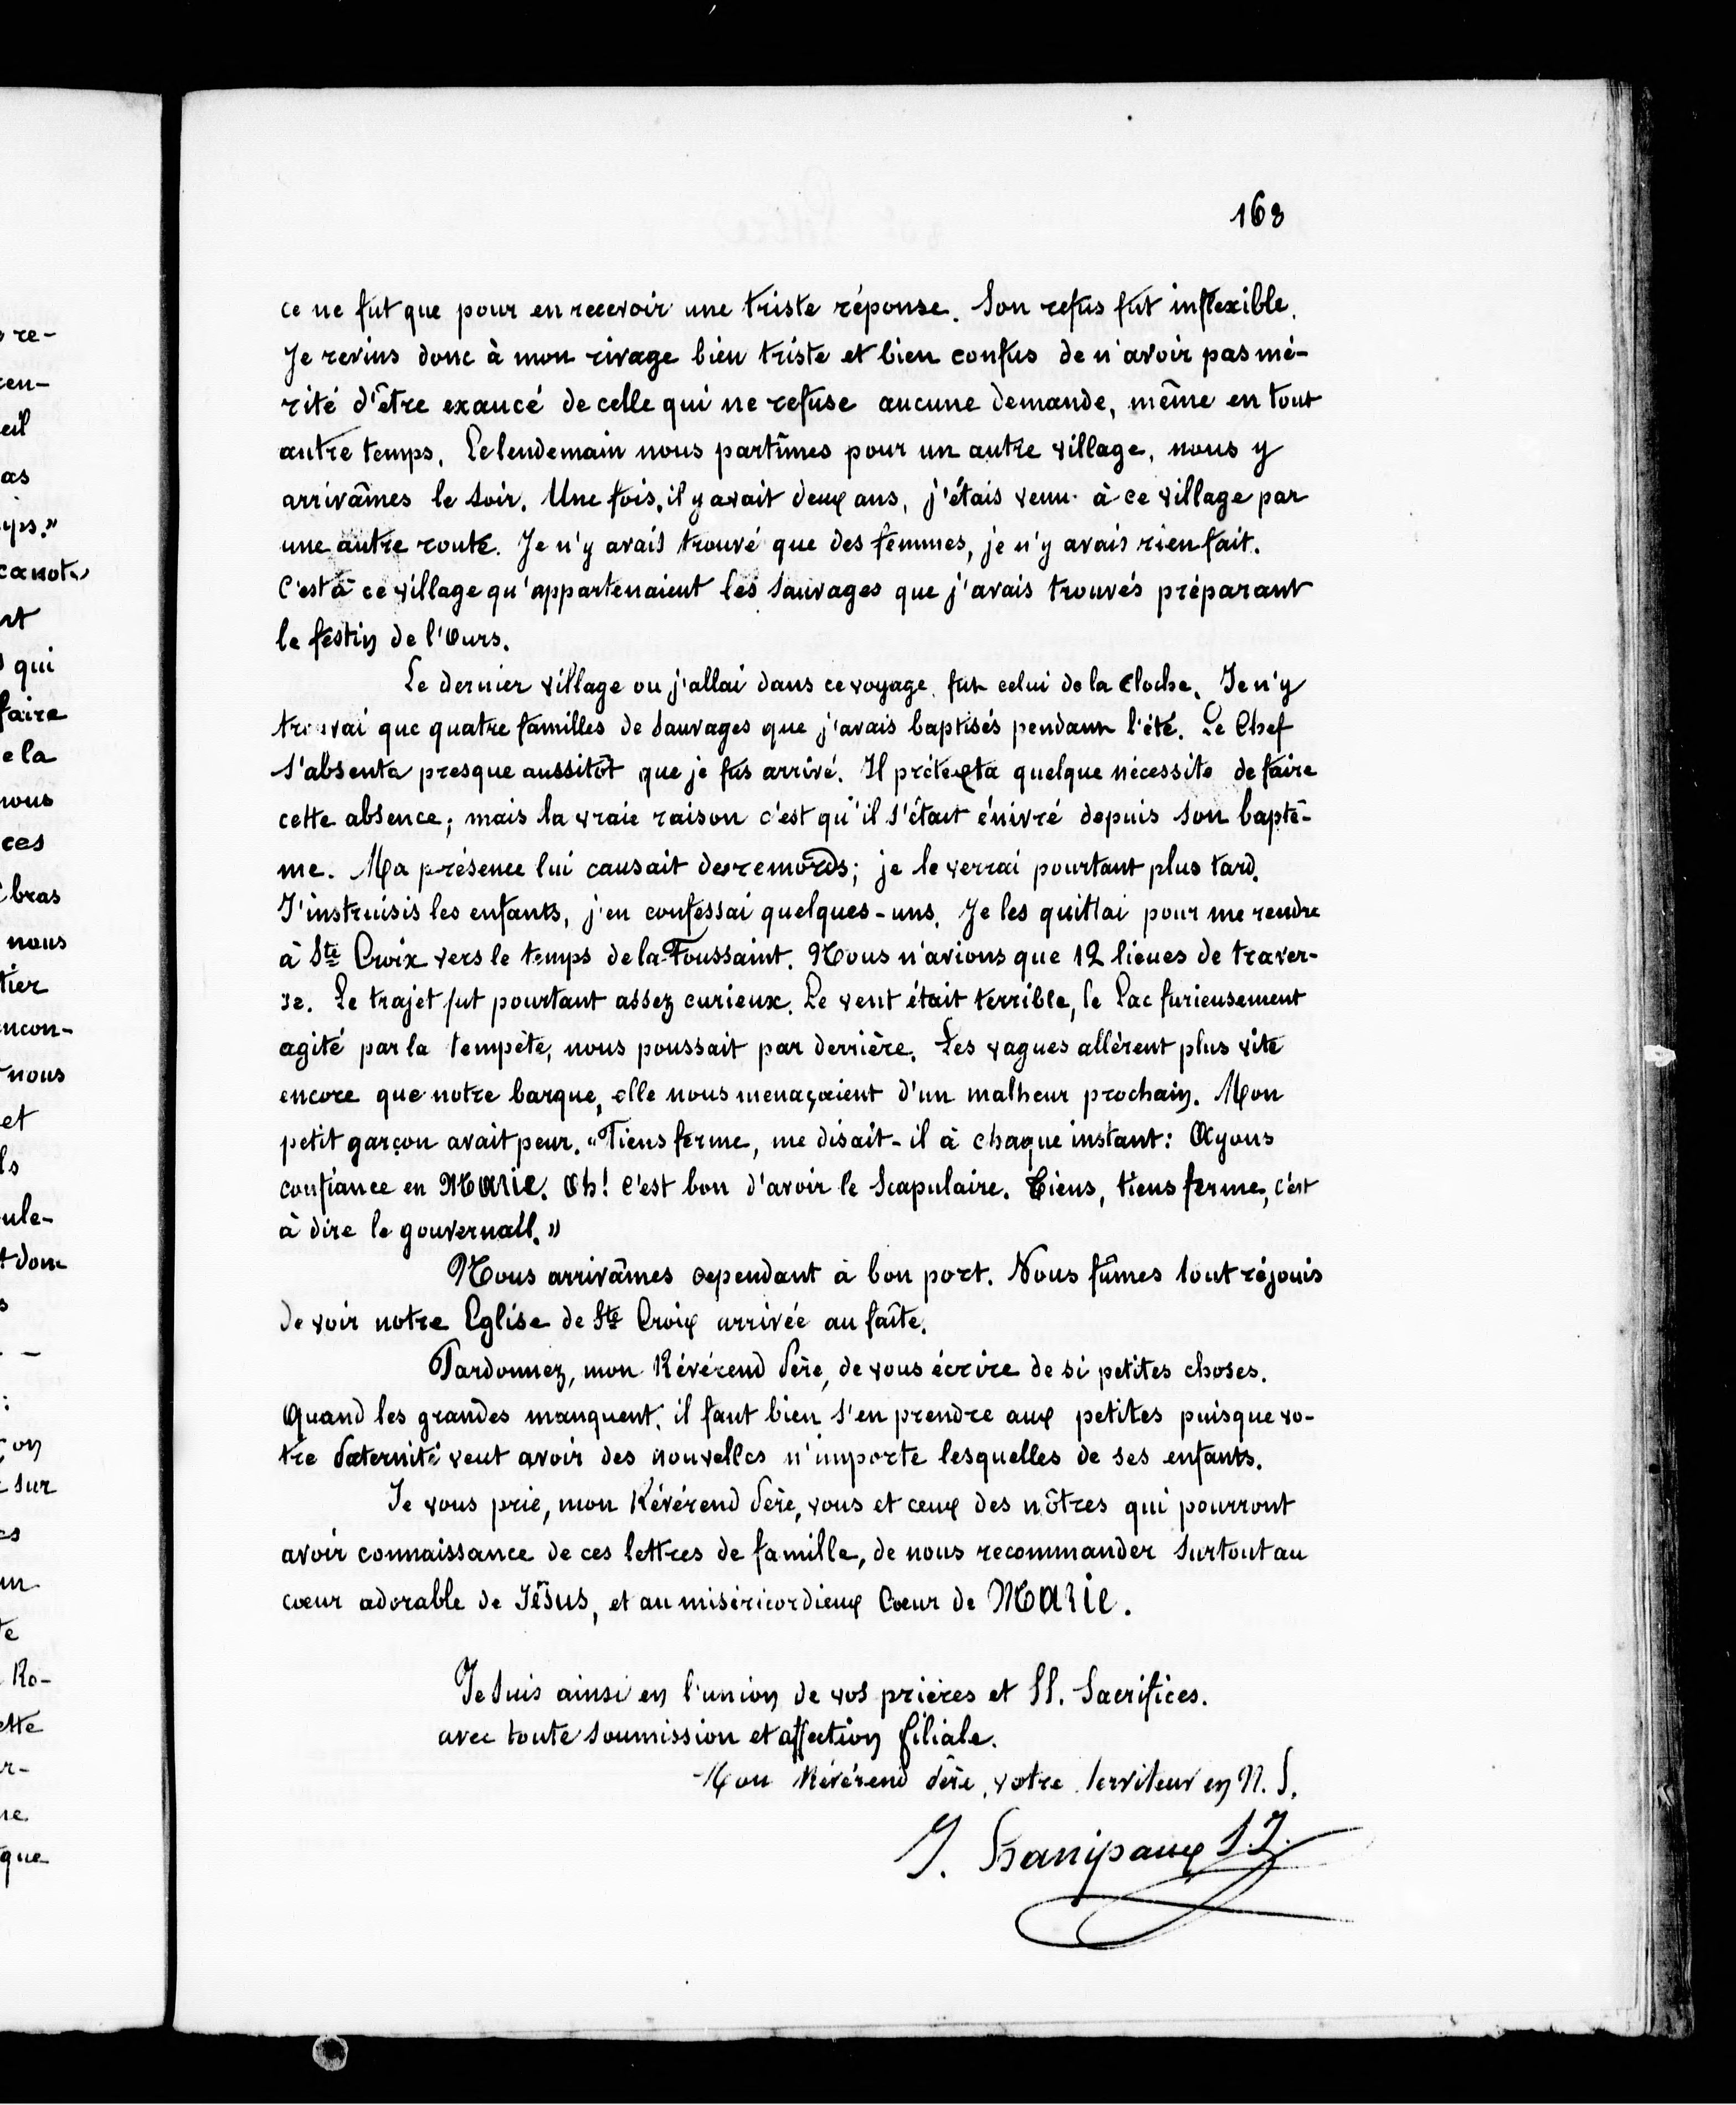 163
ce ne fut que pour en recevoir une triste réponse. Son refus fut inflexible.
Je revins donc à mon rivage bien triste et bien confus de n'avoir pas mé-
rité d'être exaucé de celle qui ne refuse aucune demande, même en tout
autre temps. Le lendemain nous partîmes pour un autre village, nous y
arrivâmes le soir. Une fois, il y avait deux ans, j'étais venu à ce village par
une autre route. Je n'y avais trouvé que des femmes, je n'y avais rien fait.
C'est à ce village qu'appartenaient les Sauvages que j'avais trouvés préparant
le festin de l'Ours.
Le dernier village ou j'allai dans ce voyage, fut celui de la Cloche. Je n'y
trouvai que quatre familles de Sauvages que j'avais baptisés pendant l'été. Le Chef
s'absenta presque aussitôt que je fus arrivé. Il prétexta quelque nécessité de faire
cette absence; mais la vraie raison c'est qu'il s'était énivré depuis son baptê-
me. Ma présence lui causait des remords; je le verrai pourtant plus tard.
J'instruisis les enfants, j'en confessai quelques-uns. Je les quittai pour me rendre
à Ste Croix vers le temps de la Toussaint. Nous n'avions que 12 lieues de traver-
se. Le trajet fut pourtant assez curieux. Le vent était terrible, le Lac furieusement
agité par la tempête, nous poussait par derrière. Les vagues allèrent plus vite
encore que notre barque, elle nous menaçaient d'un malheur prochain. Mon
petit garçon avait peur. "Tiens ferme, me disait-il à chaque instant: Ayons
confiance en Marie. Oh! c'est bon d'avoir le Scapulaire. Tiens, tiens ferme, c'est
à dire le gouvernail."
Nous arrivâmes cependant à bon port. Nous fûmes tout réjouis
de voir notre Eglise de Ste Croix arrivée au faîte.
Pardonnez, mon Révérend Père, de vous écrire de si petites choses.
Quand les grandes manquent, il faut bien s'en prendre aux petites puisque vo-
tre Paternité veut avoir des nouvelles n'importe lesquelles de ses enfants.
Je vous prie, mon Révérend Père, vous et ceux des nôtres qui pourront
avoir connaissance de ces lettres de famille, de nous recommander surtout au
cœur adorable de Jésus, et au miséricordieux Cœur de Marie.
Je suis ainsi en l'union de vos prières et SS. Sacrifices.
avec toute soumission et affection filiale.
Mon Révérend Père, votre Serviteur en N. S.
J. Hanipaux S.J.
re-
eil
as
canot
qui
faire
e la
nous
ces
bras
nous
tier
ncon-
nous
et
ule-
donc
on
sur
Ro-
ette
que